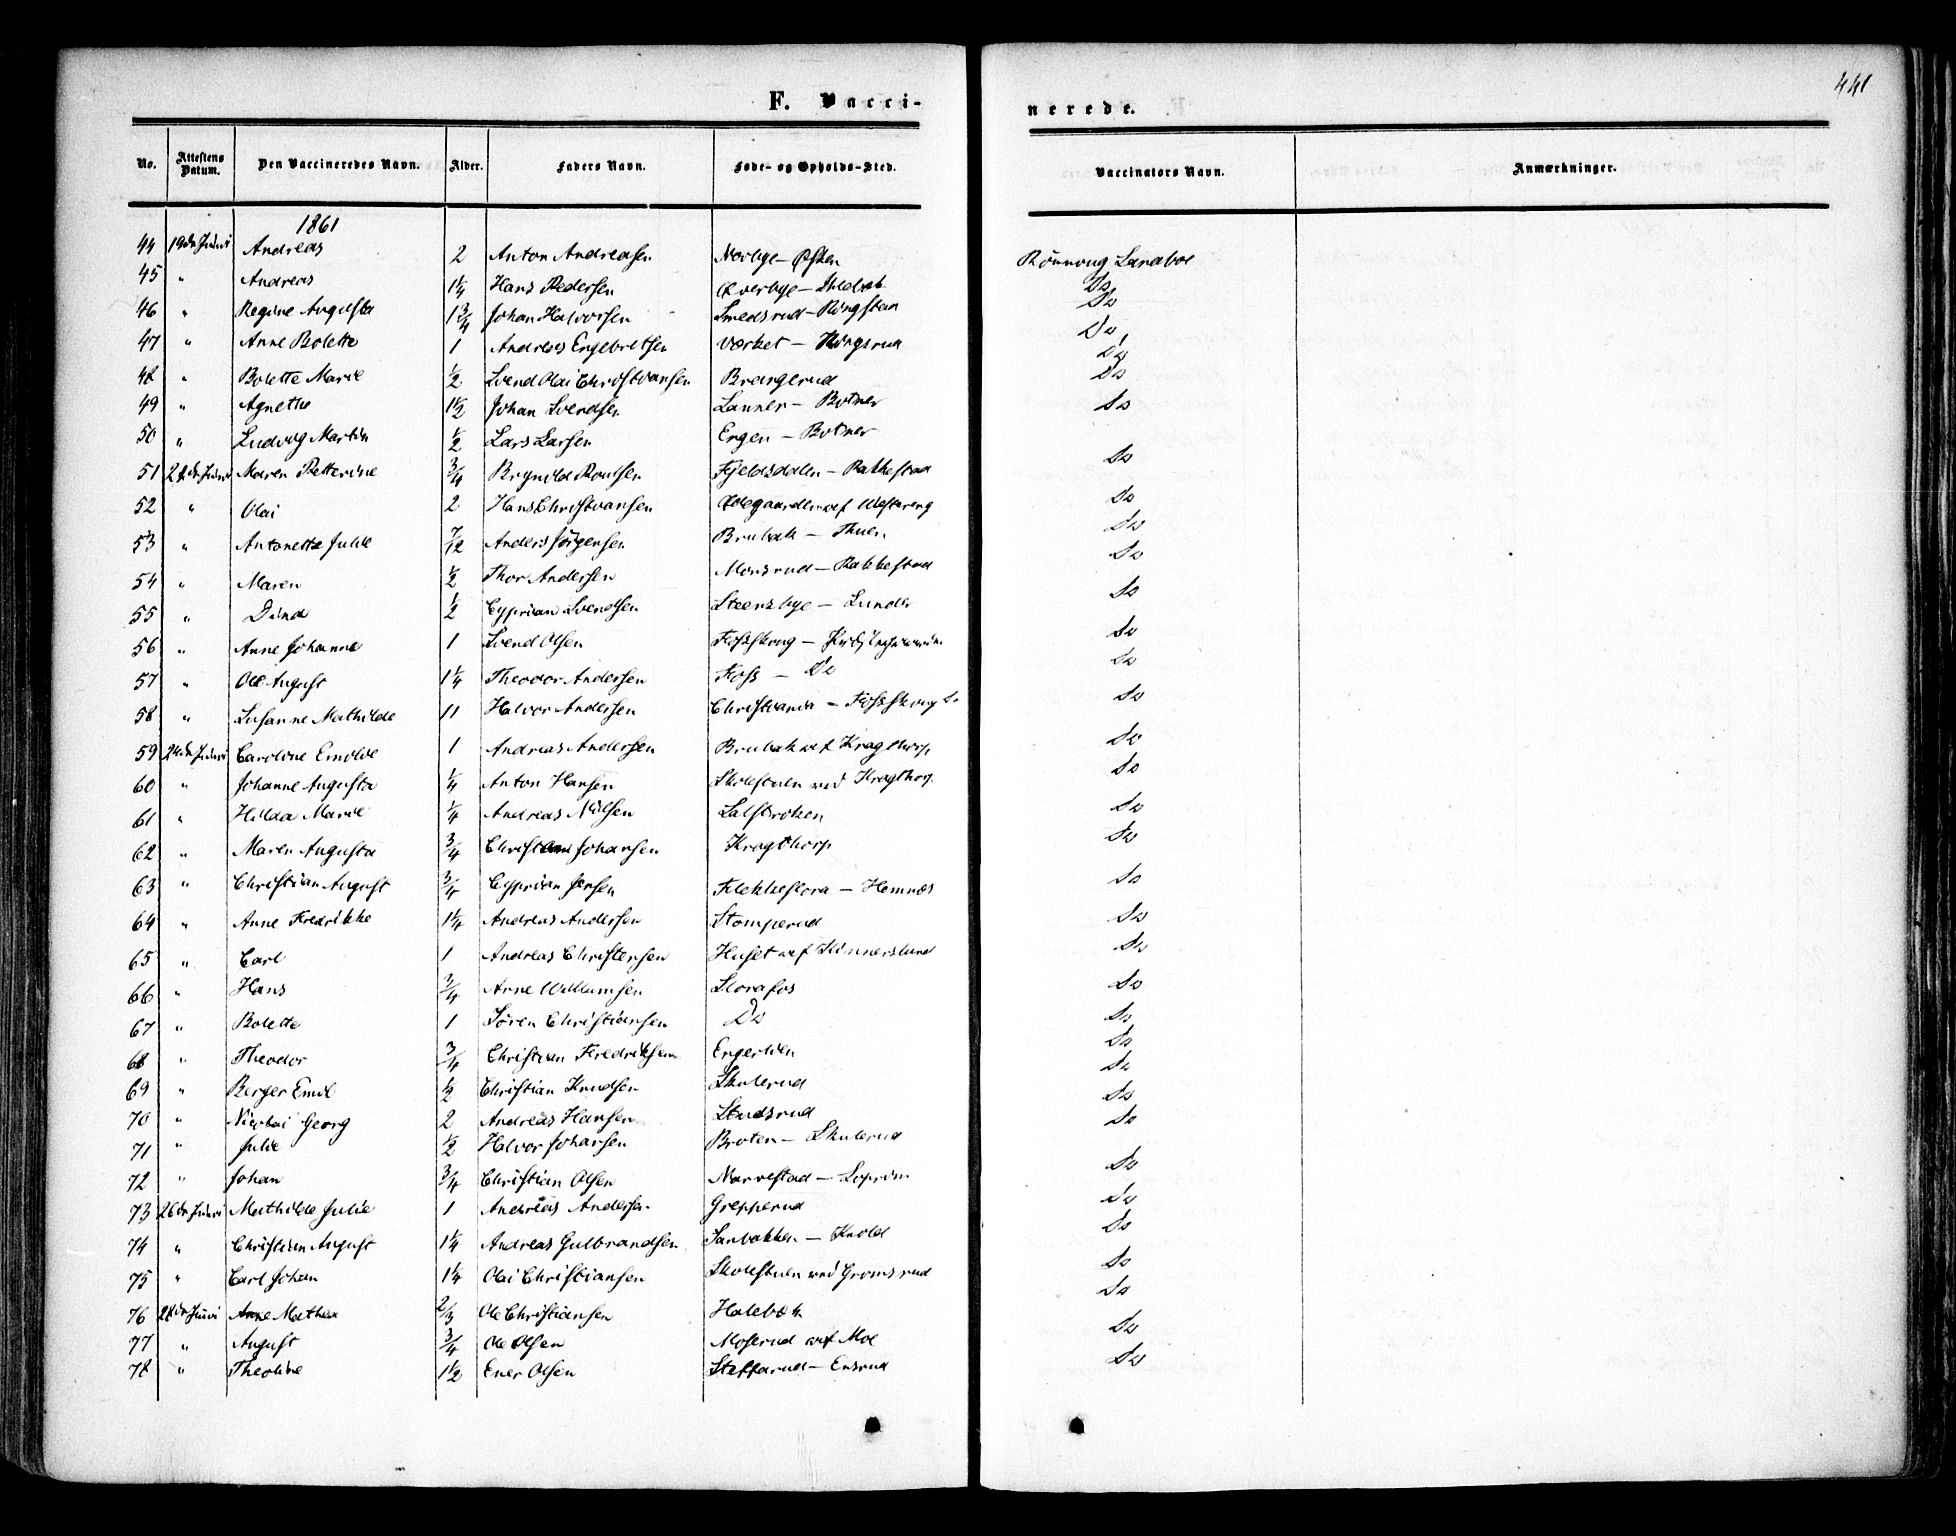 441
F. Vacci-
nerede.
No. Attestens Datum. Den Vaccineredes Navn. Alder. Faders Navn. Føde- og Opholds-Sted. Vaccinators Navn. Anmærkninger.
1861
44 19de Juni Andreas 2 Anton Andreasen Norbye
45 " Andreas 1¼ Hans Pedersen
46 " Regine Augusta 1¾ Johan Halvorsen Smedsrud - Ringstad Do
47 " Anne Bolette 1 Andreas Engebretsen Værket - Kingsrud Do
48 " Bolette Marie ½ Svend Olai Christiansen Brangerud Do
49 " Agnethe 1½ Johan Svendsen Lanner - Botner Do
50 " Ludvig Martin ½ Lars Larsen Engen - Botner
51 Juni Maren Petterine ¾ Brynild Poulsen Fjeldsdalen - Rakkestad Do
52 " Olai 2 Hans Christiansen Ødegaarden af Do
53 " Antonette Julie 7/12 Anders Jørgensen Brubak - Do
54 " Maren ½ Thor Andersen Monsrud - Rakkestad Do
55 " Dina ½ Cyprian Svendsen Steensbye - Lunder Do
56 " Anne Johanne 1 Svend Olsen Fosskoug - Do
57 " Ole August 1¼ Theodor Andersen Foss - Do Do
58 " Susanne Mathilde 11 Halvor Andersen Christiania - Fosskoug Do
59 24de Juni Caroline Emilie 1 Andreas Andersen Brubak af Kragthorp Do
60 " Johanne Augusta ¼ Anton Hansen Skolestuen ved Kragthorp Do
61 " Hilda Marie ¼ Andreas Nilsen Do
62 " Maren Augusta ¾ Christian Johansen Kragthorp Do
63 " Christian August ¾ Cyprian Jensen - Hemnæs Do
64 " Anne Fredrikke 1¼ Andreas Andersen Stomperud Do
65 " Carl 1 Andreas Christensen Huset af Kinnerslund Do
66 " Hans ¾ Arne Willumsen Storafos Do
67 " Bolette 1 Søren Christiansen Do Do
68 " Theodor ¾ Christian Fredriksen Engerlien Do
69 " Berger Emil ½ Christian Knudsen Skulerud Do
70 " Nicolai Georg 2 Andreas Hansen Studsrud Do
71 " Julie ½ Halvor Johansen Broten - Skulerud Do
72 " Johan ¾ Christian Olsen Narvestad - Do
73 26de Juni Mathilde Julie 1 Andreas Andersen Grepperud Do
74 " Christian August 1¼ Andreas Gulbrandsen Sanbakken - Knold Do
75 " Carl Johan 1¼ Olai Christiansen Skolestuen ved Gromsrud Do
76 28de Juni Anne Mathea 2/3 Ole Christiansen Holebæk Do
77 " August ¾ Ole Olsen Moserud af Moe Do
78 " Theoline 1½ Ener Olsen Steffarud - Ensrud Do